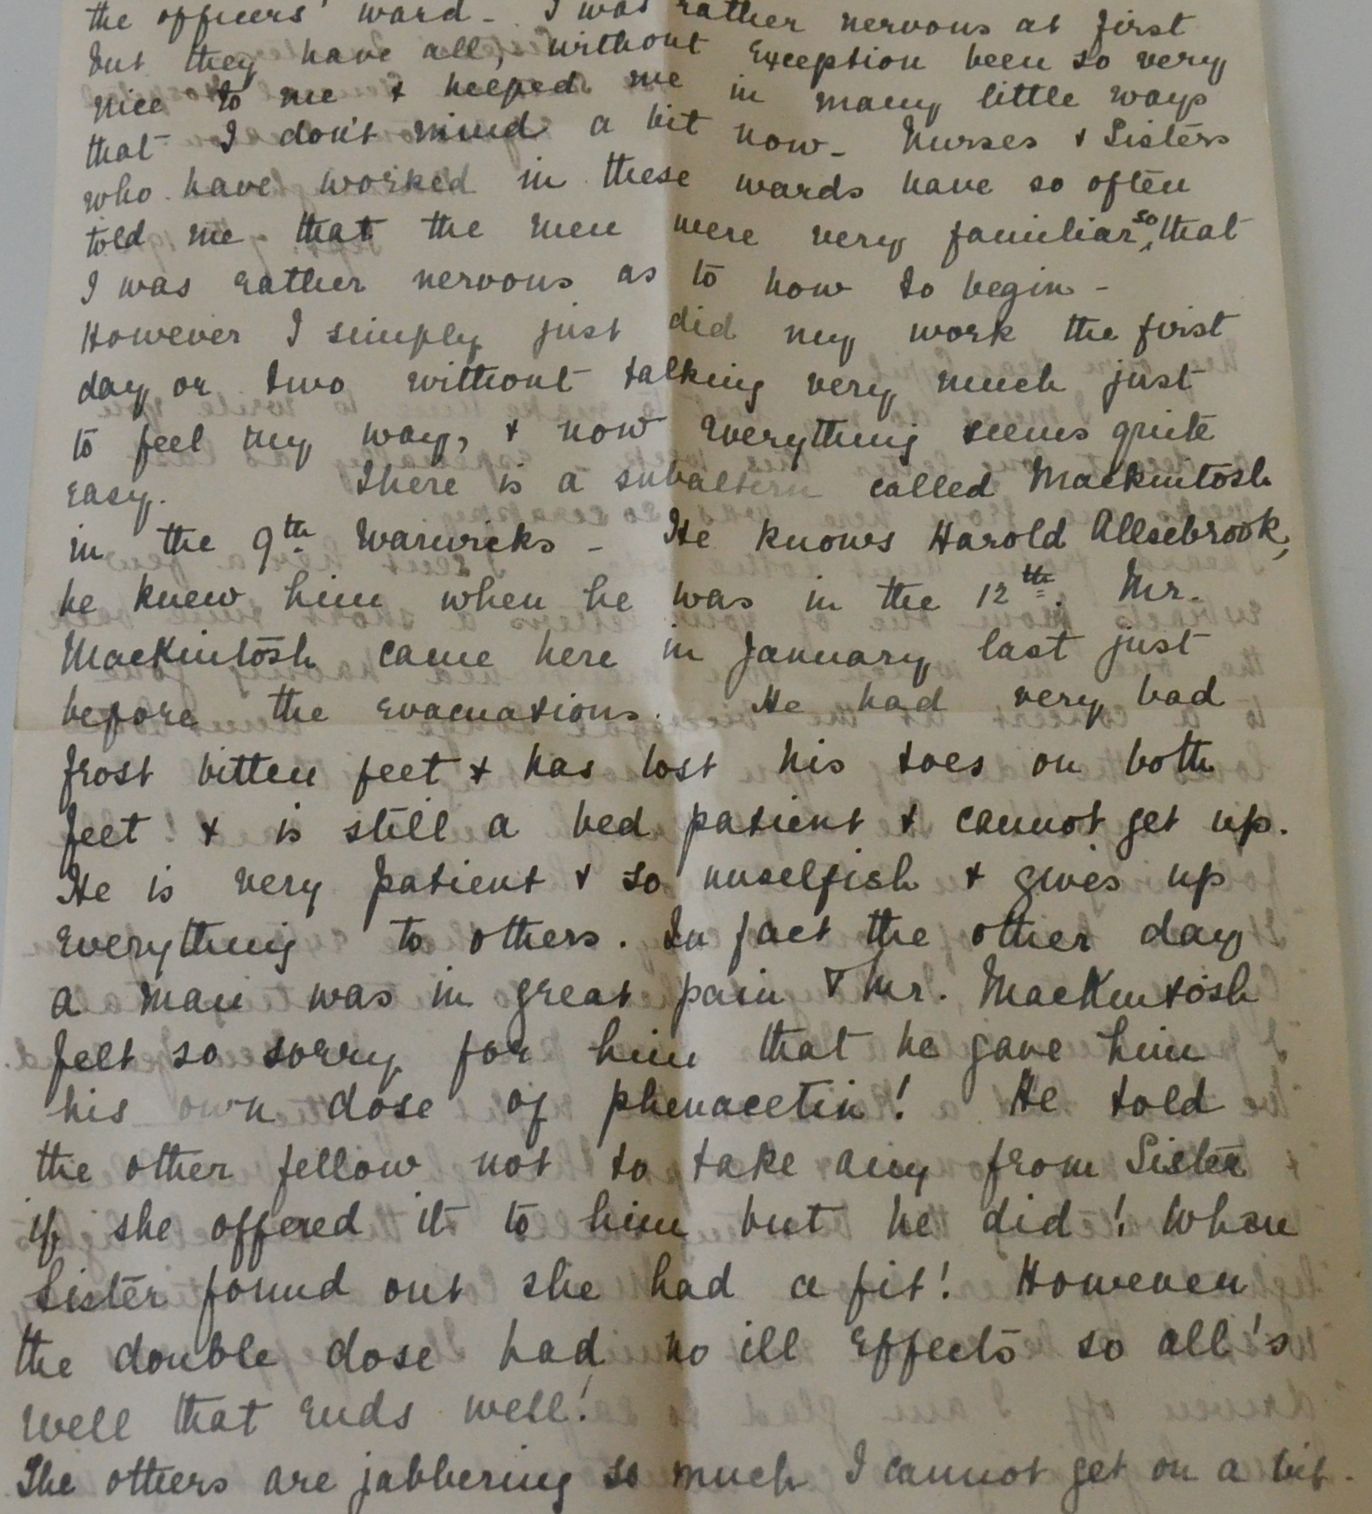 the officers' ward - I was rather nervous at first
but they have all, without exception been so very
nice to me & helped me in many little ways
that I don't mind a bit now - Nurses & Sisters
who have worked in these wards have so often
told me that the men were very familiar, so that
I was rather nervous as to how to begin -
However I simply just did my work the first
day or two without talking very much just
to feel my way, & now everything seems quite
easy. There is a subaltern called Mackintosh
in the 9th Warwicks - He knows Harold Allsebrook,
he knew him when he was in the 12th. Mr.
MacKintosh came here in January last just
before the evacuations. He had very bad
frost bitten feet & has lost his toes on both
feet & is still a bed patient & cannot get up.
He is very patient & so unselfish & gives up
everything to others. In fact the other day
a man was in great pain & Mr. MacKintosh
felt so sorry for him that he gave him
his own dose of phenacetin! He told
the other fellow not to take any from Sister
if she offered it to him but he did! When
Sister found out she had a fit! However
the double dose had no ill effects so all's
well that ends well!
The others are jabbering so much I cannot get on a bit.